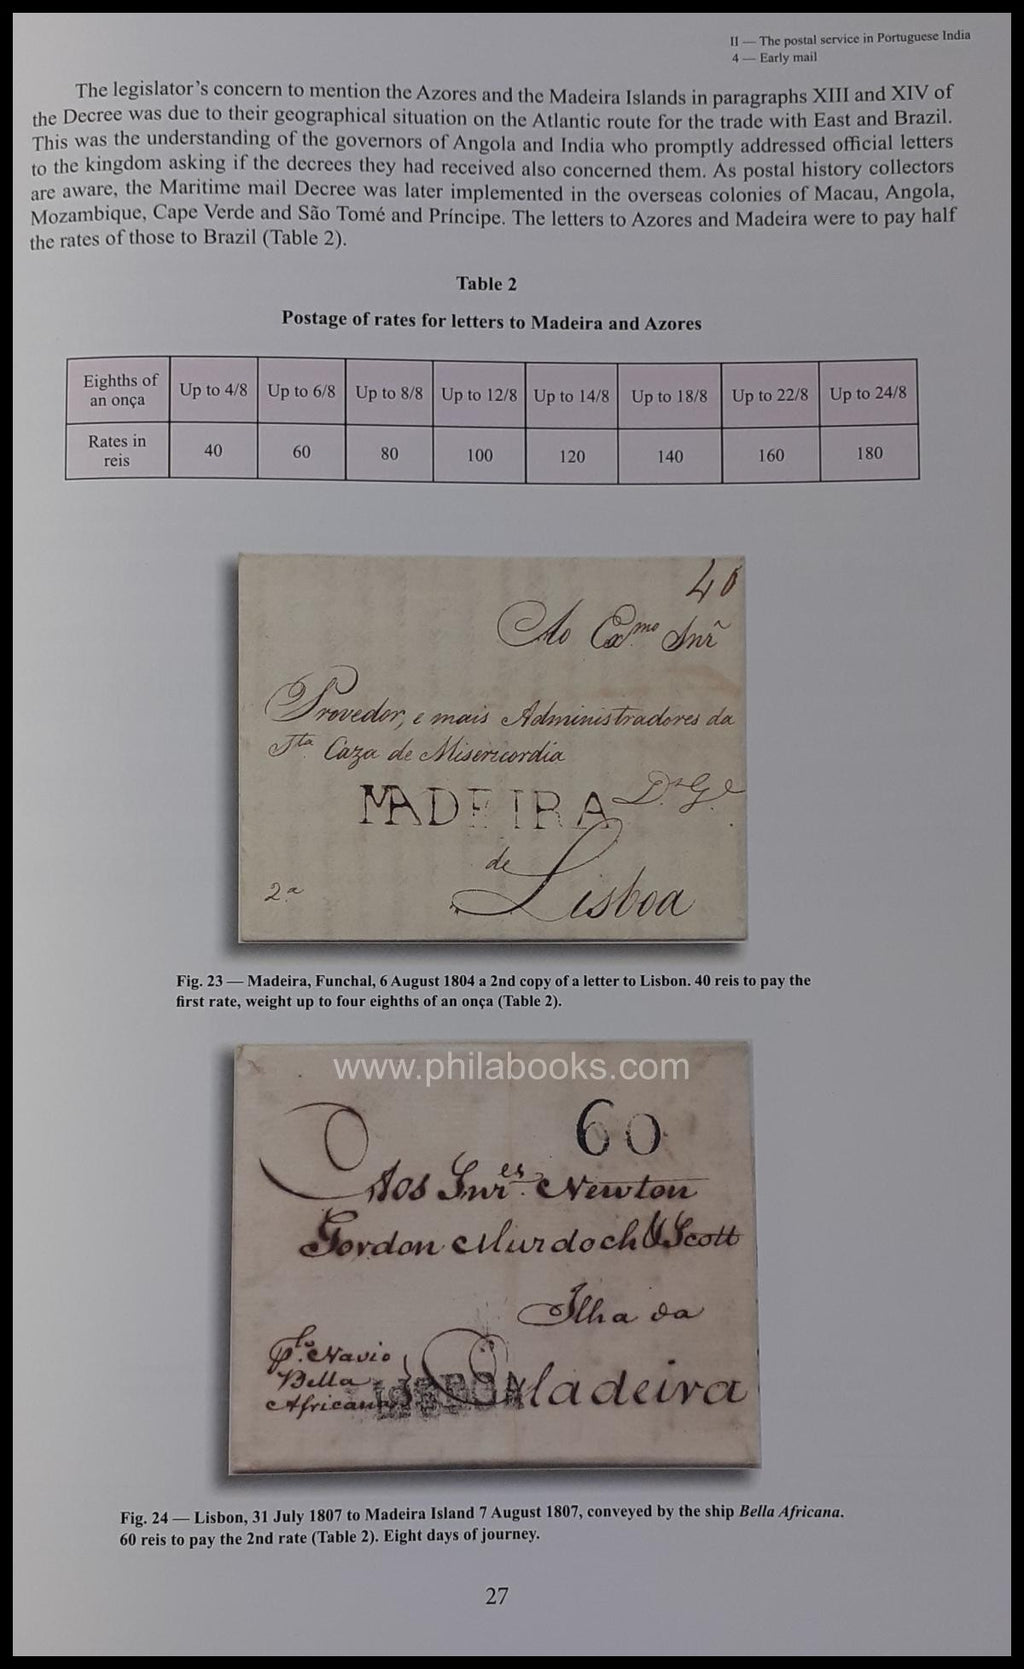 II — The postal service in Portuguese India
4 — Early mail
The legislator's concern to mention the Azores and the Madeira Islands in paragraphs XIII and XIV of
the Decree was due to their geographical situation on the Atlantic route for the trade with East and Brazil.
This was the understanding of the governors of Angola and India who promptly addressed official letters
to the kingdom asking if the decrees they had received also concerned them. As postal history collectors
are aware, the Maritime mail Decree was later implemented in the overseas colonies of Macau, Angola,
Mozambique, Cape Verde and São Tomé and Príncipe. The letters to Azores and Madeira were to pay half
the rates of those to Brazil (Table 2).
Table 2
Postage of rates for letters to Madeira and Azores
Eighths of an onça Up to 4/8 Up to 6/8 Up to 8/8 Up to 12/8 Up to 14/8 Up to 18/8 Up to 22/8 Up to 24/8
Rates in reis 40 60 80 100 120 140 160 180
40
Ao Exmo Snr
Provedor, e mais Administradores da
Sta Caza de Misericordia
MADEIRA Ds Ge
de
2a Lisboa
Fig. 23 — Madeira, Funchal, 6 August 1804 a 2nd copy of a letter to Lisbon. 40 reis to pay the
first rate, weight up to four eighths of an onça (Table 2).
www.philabooks.com
60
Aos Snres Newton
Gordon Murdoch & Scott
Ilha da
Madeira
plo Navio
Bella
Africana
LISBOA
Fig. 24 — Lisbon, 31 July 1807 to Madeira Island 7 August 1807, conveyed by the ship Bella Africana.
60 reis to pay the 2nd rate (Table 2). Eight days of journey.
27